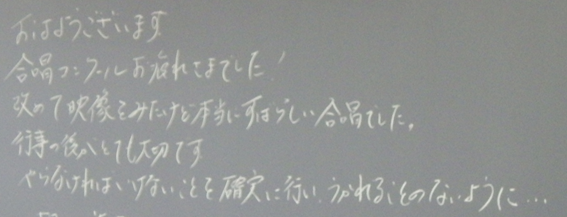 おはようございます
合唱コンクールお疲れさまでした!
改めて映像をみたけど本当にすばらしい合唱でした。
行事の後がとても大切です
やらなければいけないことを確実に行い、うかれることのないように…